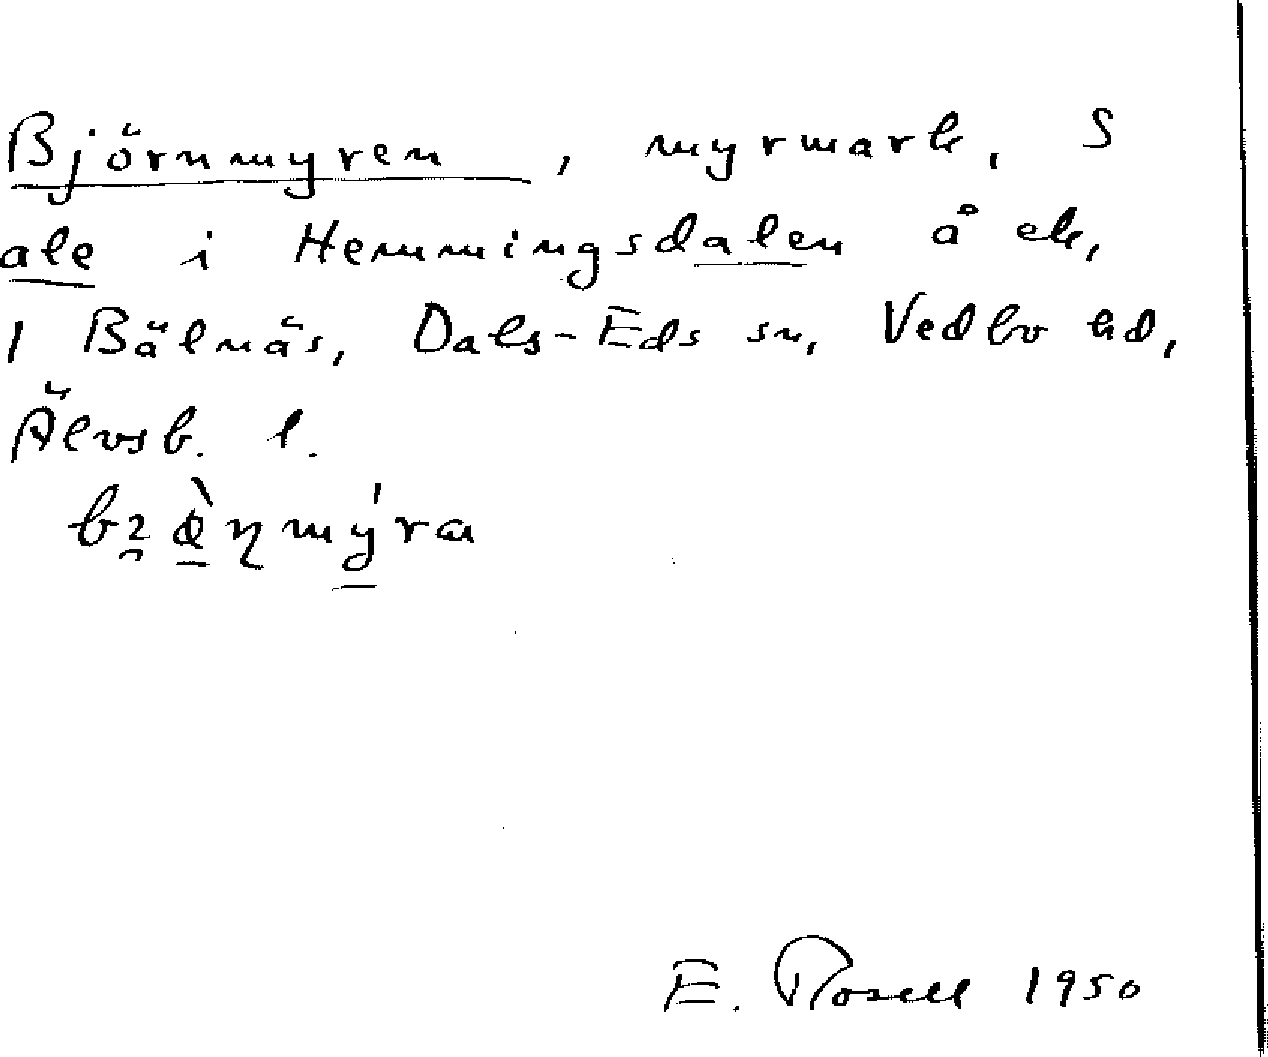 Björnmyren, myrmark, S
ale i Hemmingsdalen å ek,
1 Bälnäs, Dals-Eds sn, Vedbo hd,
Älvsb. l.
E. Rosell 1950